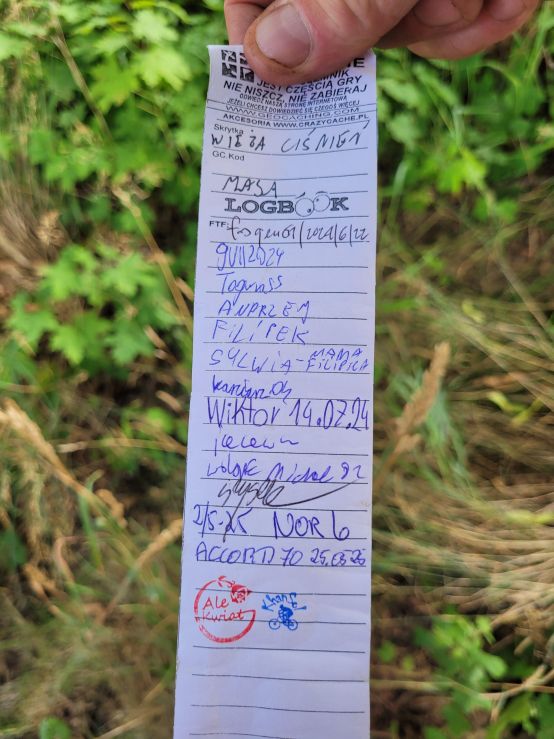 JEST CZĘŚCIĄ GRY
NIE NISZCZ, NIE ZABIERAJ
ODWIEDŹ NASZĄ STRONĘ INTERNETOWĄ
JEŻELI CHCESZ DOWIEDZIEĆ SIĘ CZEGOŚ WIĘCEJ
WWW.GEOCACHING.COM
AKCESORIA WWW.CRAZYCACHE.PL
Skrytka
WIEŻA CIŚNIEŃ
GC.Kod
MASA
LOGBOOK
FTF: 2024/6/22
9VII2024
Togmass
ANDRZEM
FILIPEK
SYLWIA-MAMA FILIPKA
Wiktor 14.07.24
Michał 92
2/5-25 NOR6
ACCORD70
Ale Kwiat